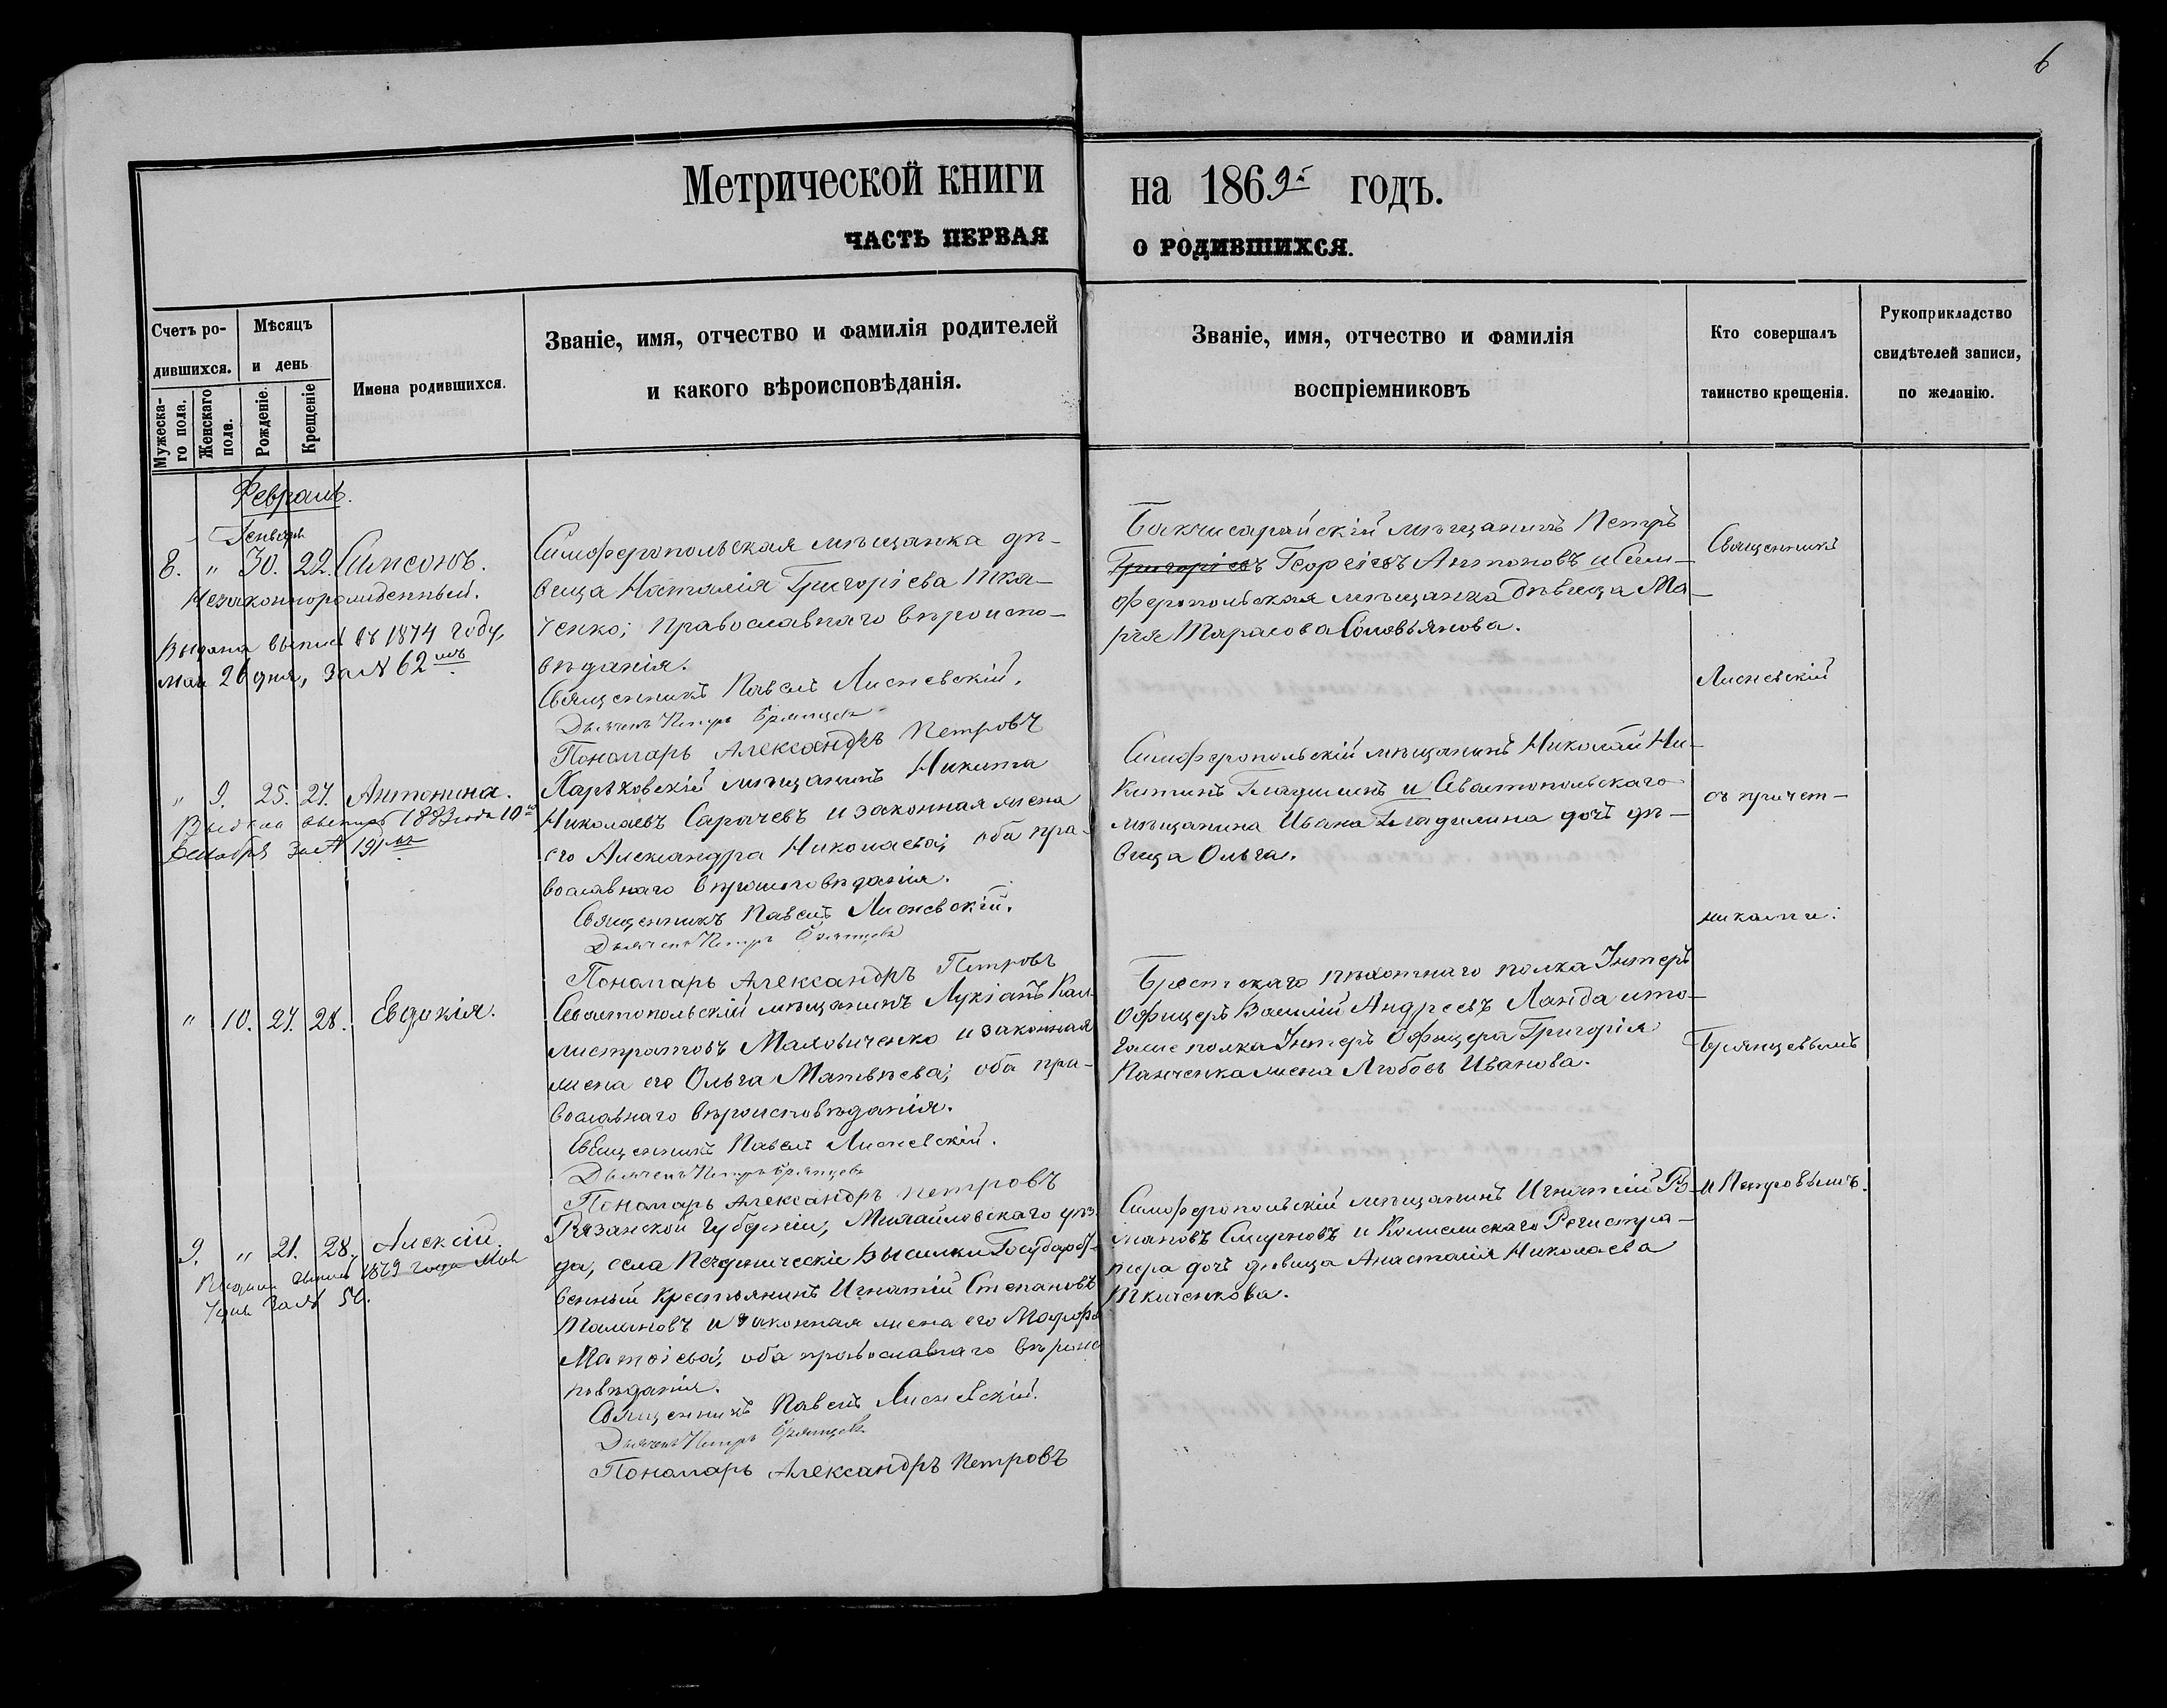 6
Метрической книги на 1869й годъ.
ЧАСТЬ ПЕРВАЯ О РОДИВШИХСЯ.
Счетъ родившихся.
Мужеска-
го пола.
Женскаго
пола.
Мѣсяцъ
и день
Рожденіе.
Крещеніе
Имена родившихся.
Званіе, имя, отчество и фамилія родителей
и какого вѣроисповѣданія.
Званіе, имя, отчество и фамилія
воспріемниковъ
Кто совершалъ
таинство крещенія.
Рукоприкладство
свидѣтелей записи,
по желанію.
Февраль.
Генварь
8. " 30. 22. Симеонъ.
Незаконнорожденный.
Выдана выпись въ 1874 году,
мая 26 дня, за № 62мъ
Симферопольская мѣщанка дѣ-
вица Наталія Григоріева Тка-
ченко; православнаго вѣроиспо-
вѣданія.
Священникъ Павелъ Лисневскій.
Дьячекъ Петръ Брянцевъ
Пономарь Александръ Петровъ
Бакчисарайскій мѣщанинъ Петръ
Григоріевъ Георгіевъ Антоновъ и Сим-
феропольская мѣщанка дѣвица Ма-
рія Тарасова Соловьянова.
Священникъ
Лисневскій
съ причет-
никами:
Брянцевымъ
и Петровымъ.
" 9. 25. 27. Антонина.
Выдана выпись 1883 года 10го
за № 191мъ
Харьковскій мѣщанинъ Никита
Николаевъ Сарачевъ и законная жена
его Александра Николаева; оба пра-
вославнаго вѣроисповѣданія.
Священникъ Павелъ Лисневскій.
Дьячекъ Петръ Брянцевъ
Пономарь Александръ Петровъ
Симферопольскій мѣщанинъ Николай Ни-
китинъ Гладилинъ и Севастопольскаго
мѣщанина Ивана Гладилина дочь дѣ-
вица Ольга.
" 10. 27. 28. Евдокія.
Севастопольскій мѣщанинъ Лукіанъ Кал-
листратовъ Маловиченко и законная
жена его Ольга Матвѣева; оба пра-
вославнаго вѣроисповѣданія.
Священникъ Павелъ Лисневскій.
Дьячекъ Петръ Брянцевъ
Пономарь Александръ Петровъ
Брестскаго пѣхотнаго полка Унтеръ
Офицеръ Василій Андреевъ Ланда и то-
гоже полка Унтеръ Офицера Григорія
Панченка жена Любовь Иванова.
9. " 21. 28. Алексій.
Выдана выпись 1879 года Мая
за № 56.
Рязанской губерніи, Михайловскаго уѣз-
да, села Печерническіе Выселки Государст-
венный крестьянинъ Игнатій Степановъ
Талановъ и законная жена его Марфа
Матвіева; оба православнаго вѣроис-
повѣданія.
Священникъ Павелъ Лисневскій.
Дьячекъ Петръ Брянцевъ
Пономарь Александръ Петровъ
Симферопольскій мѣщанинъ Игнатій Ро-
мановъ Смирновъ и Коллежскаго Регистра-
тора дочь дѣвица Анастасія Николаева
Ткаченкова.